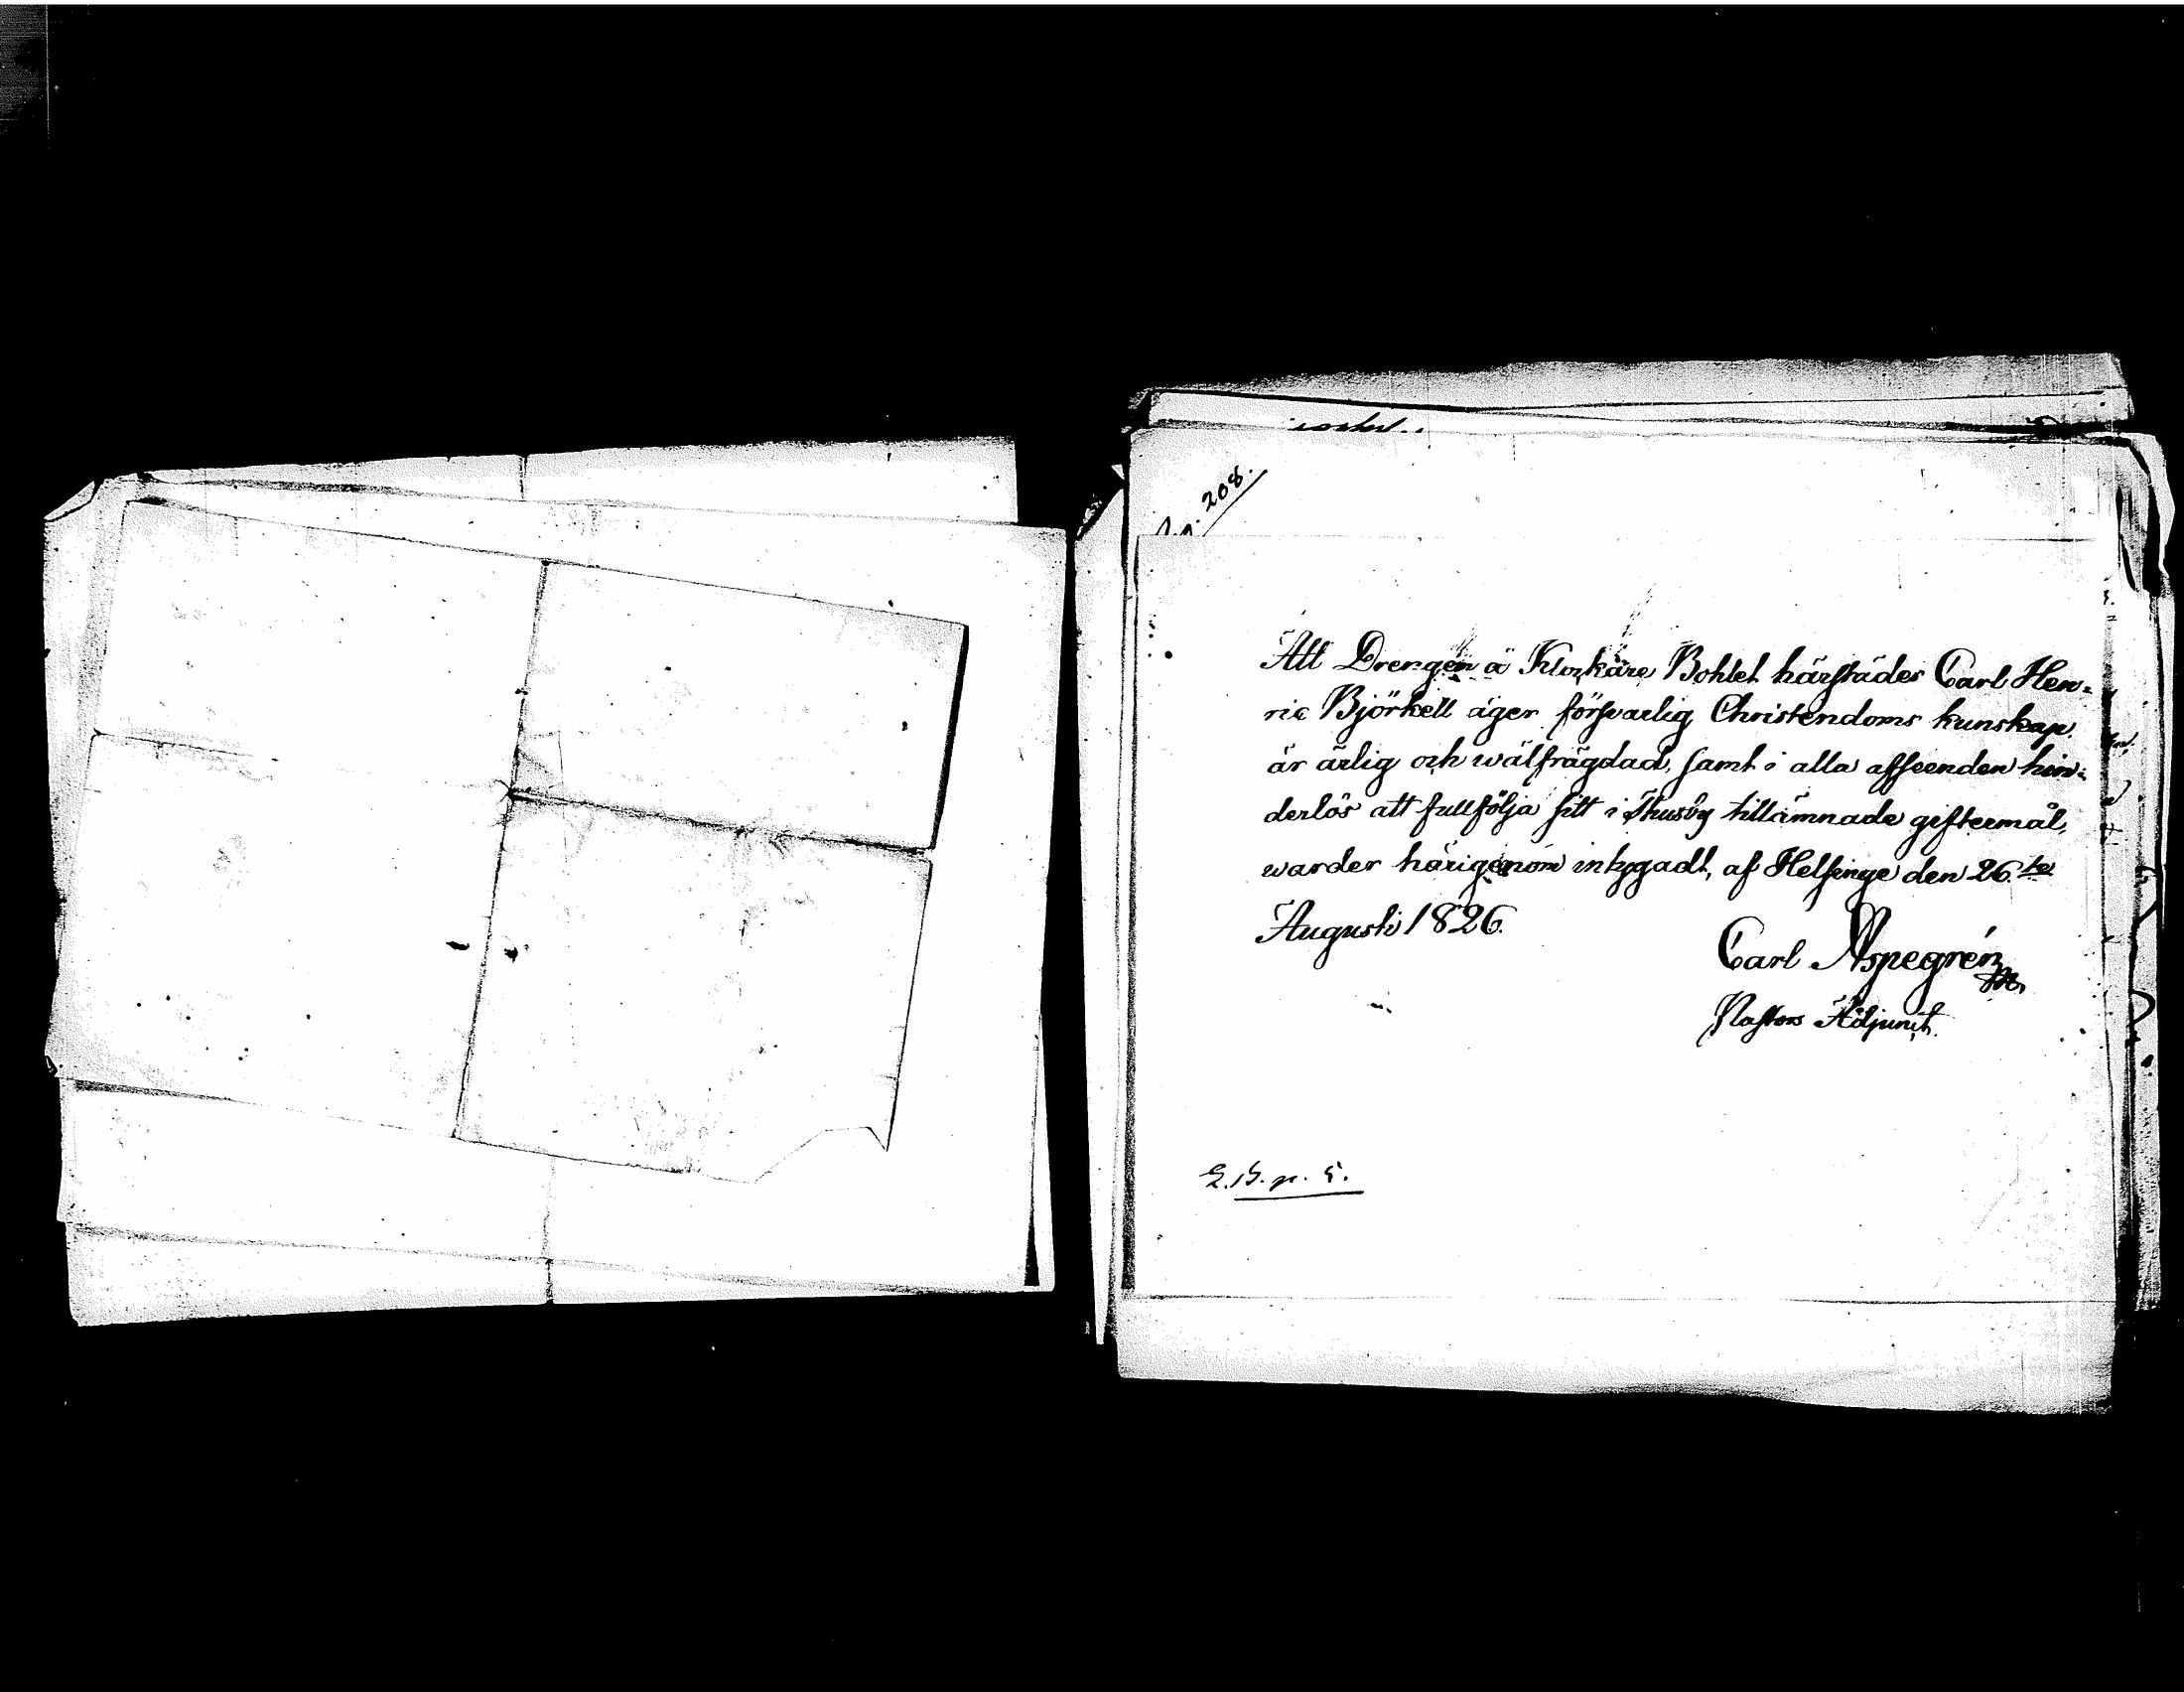 208.
Att Drengen å Klockare Bohlet härstädes Carl Hen-
ric Björkell äger försvarlig Christendoms kunskap,
är ärlig och wälfrägdad, samt i alla afseenden hin-
derlös att fullfölja sitt i Thusby tillämnade giftermål,
warder härigenom intygadt, af Helsinge den 26.te
Augusti 1826.
Carl Aspegrén
Pastors Adjunct.
p. 5.